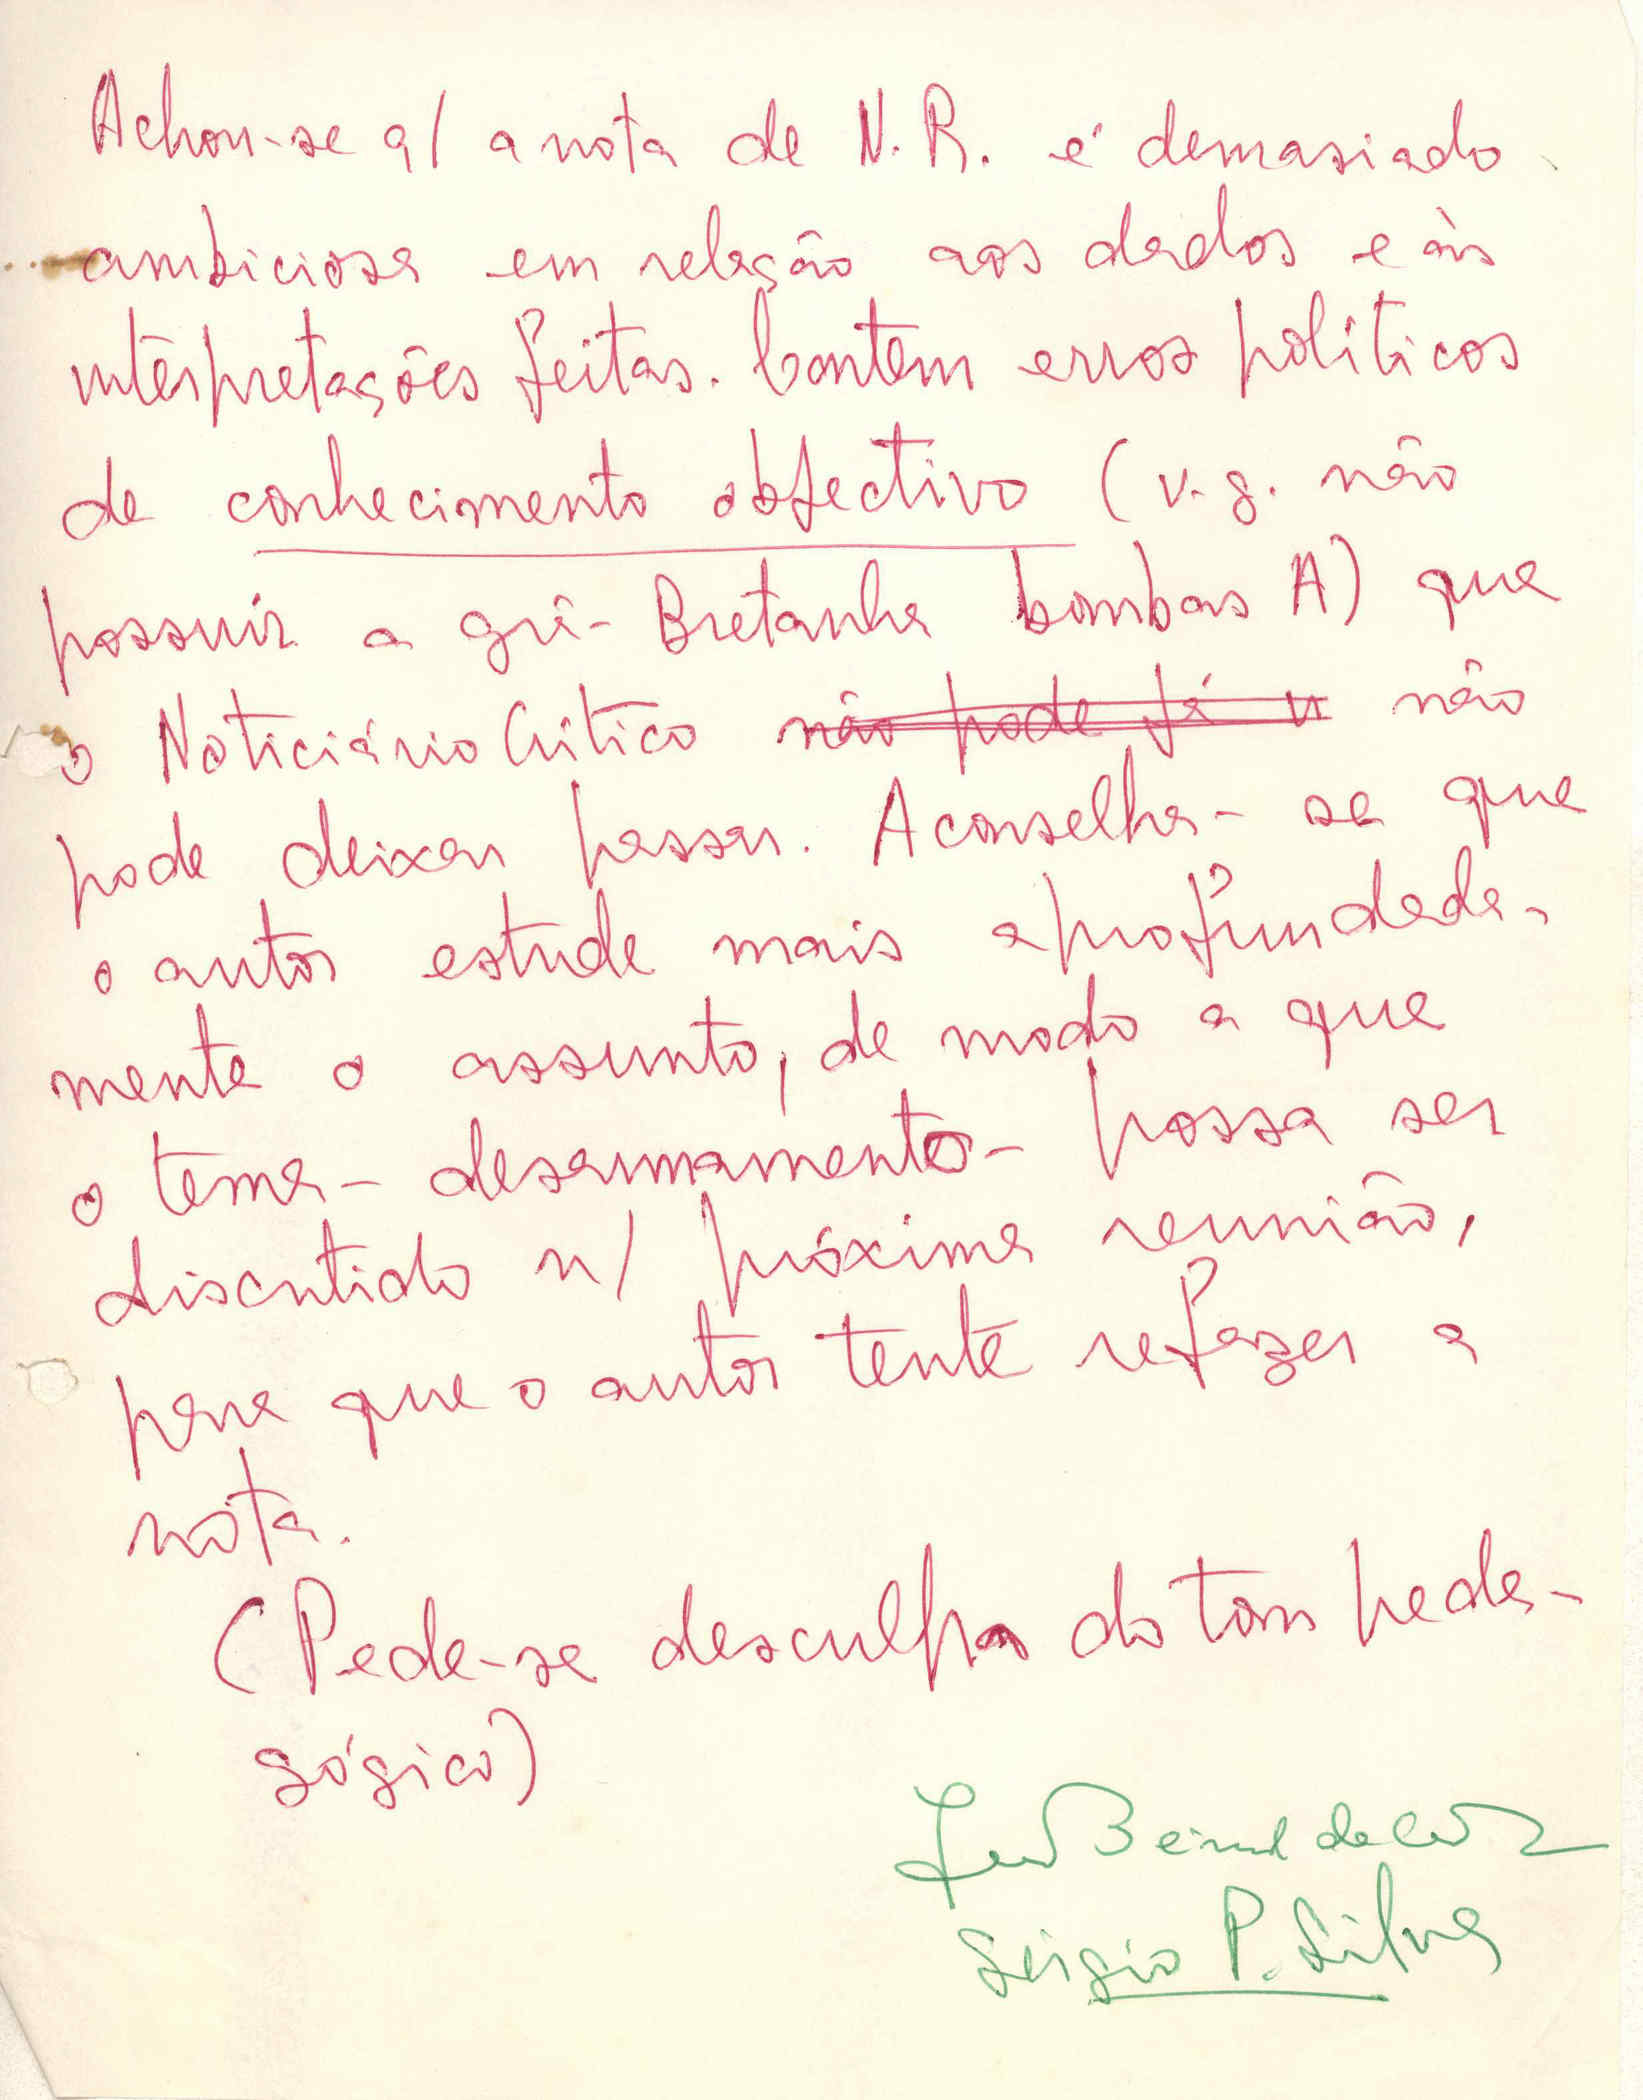 Achou-se q/ a nota de N. R. é demasiado
ambiciosa em relação aos dados e às
interpretações feitas. Contem erros políticos
de conhecimento objectivo (v. g. não
possuir a grã-Bretanha bombas A) que
o Noticiário Crítico não pode já não
pode deixar passar. Aconselha-se que
o autor estude mais aprofundada-
mente o assunto, de modo a que
o tema - desarmamento - possa ser
discutido n/ próxima reunião,
para que o autor tente refazer a
nota.
(Pede-se desculpa do tom peda-
gógico)
Bénard da
Sérgio P. Silva